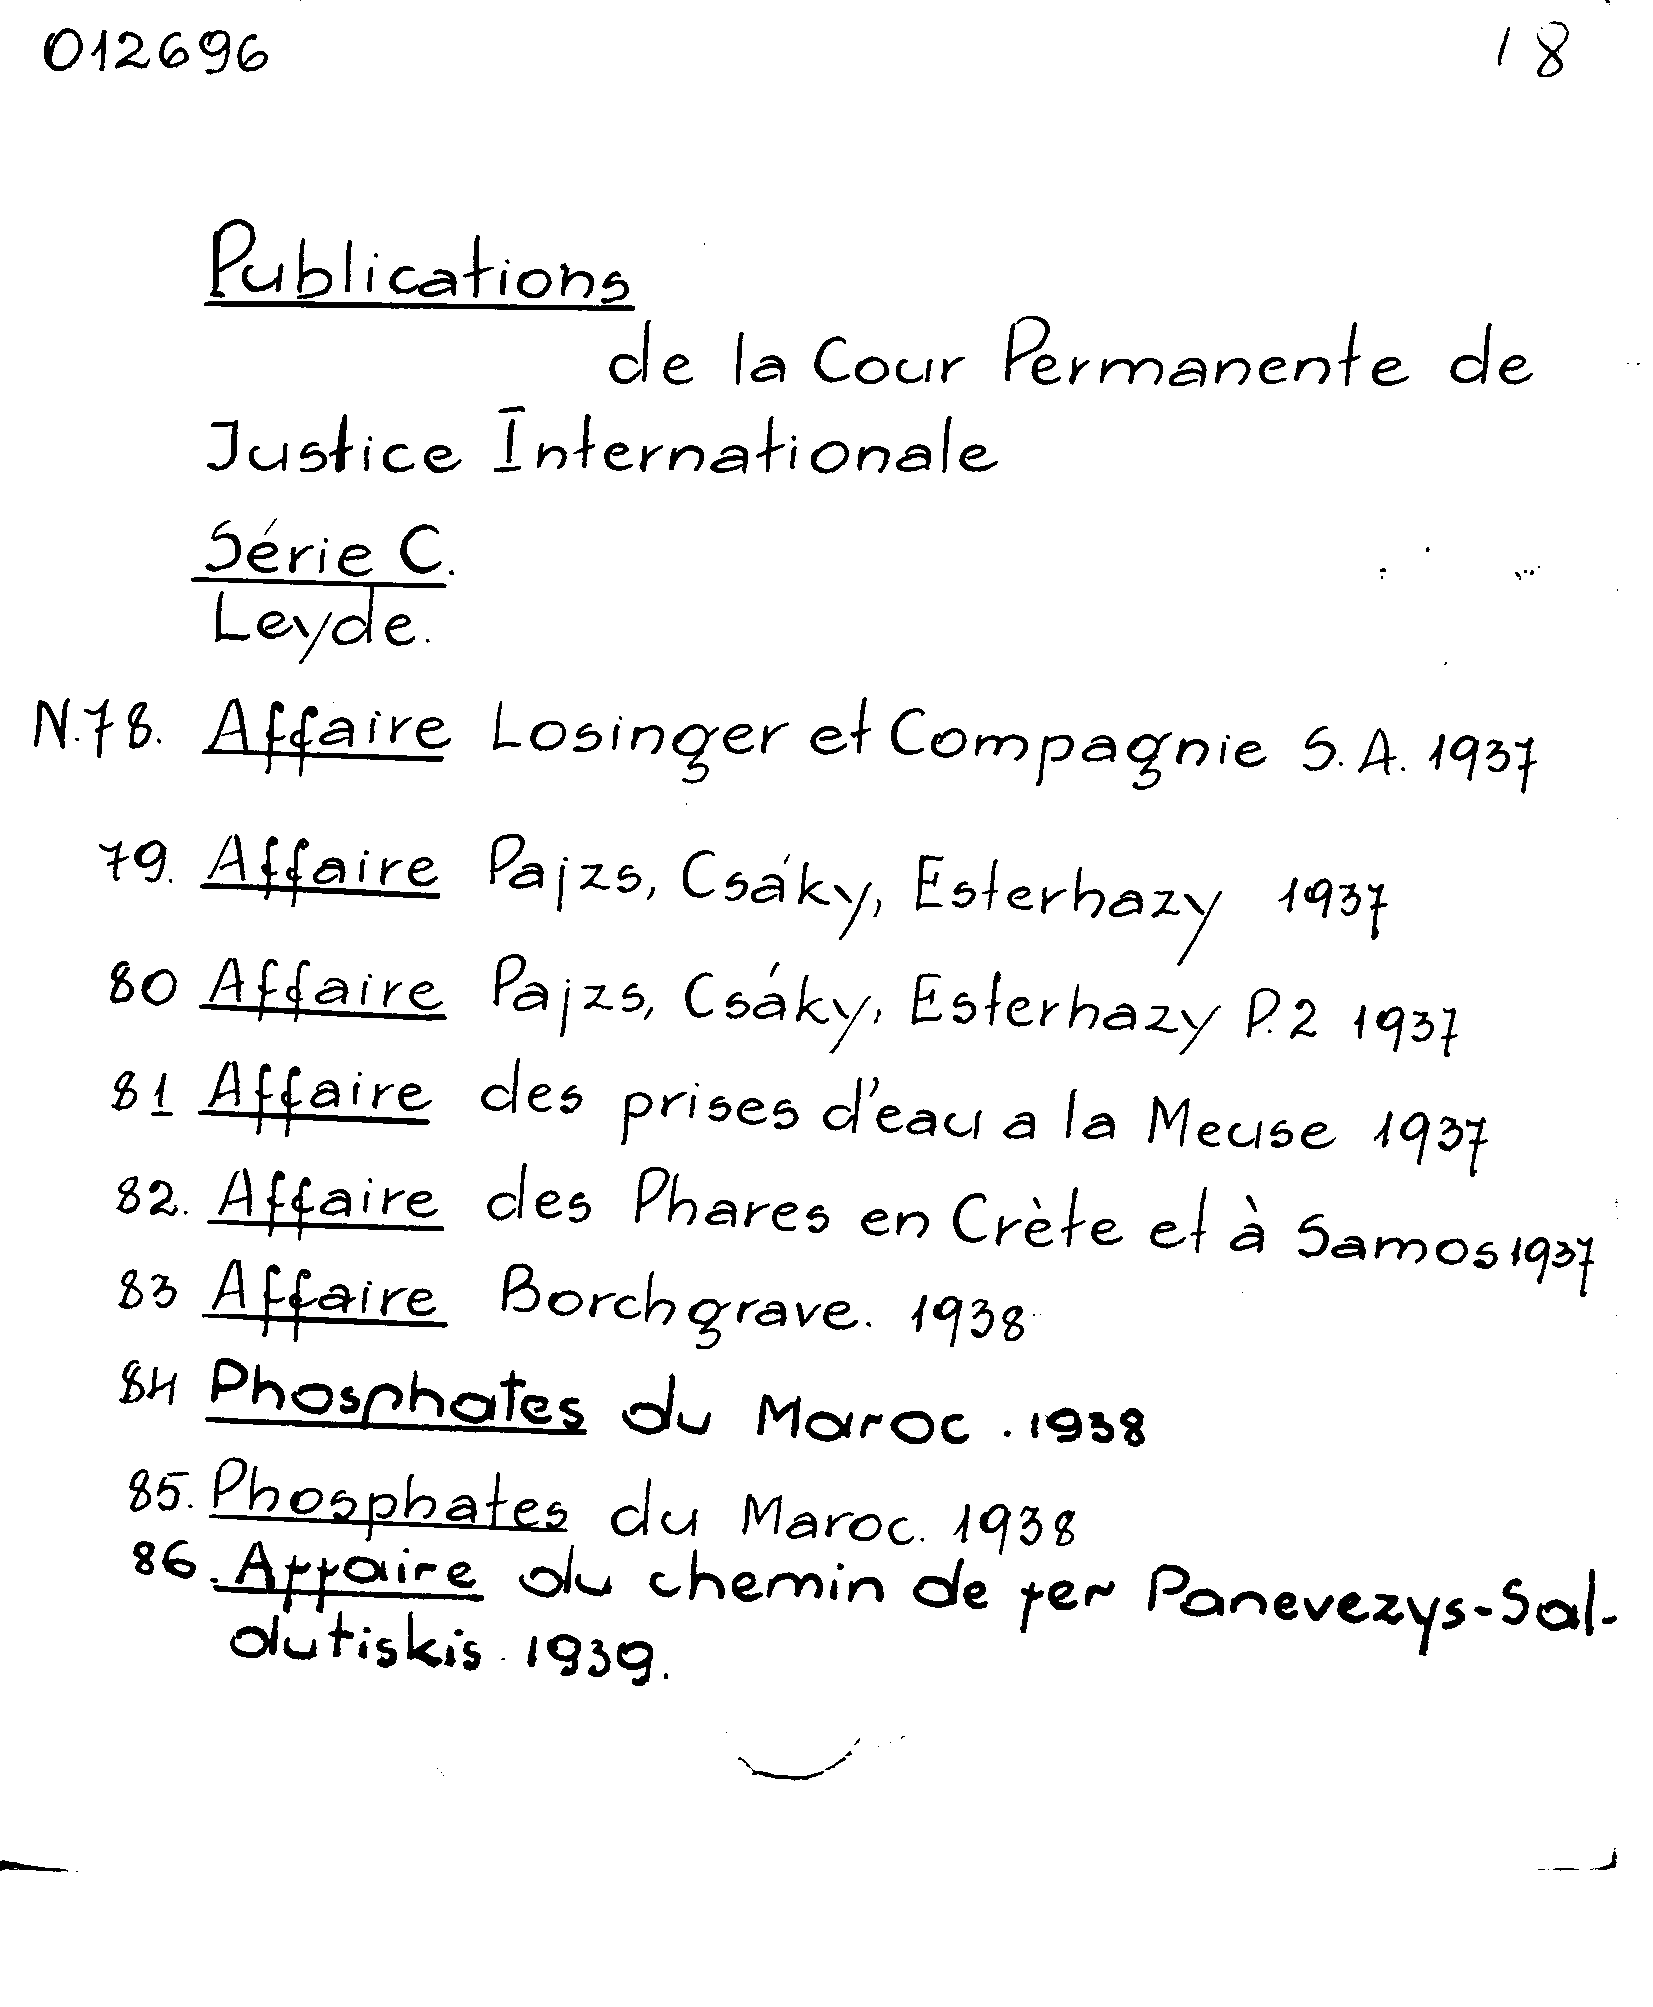 012696 18
Publications
de la Cour Permanente de
Justice Internationale
Série C.
Leyde.
N.78. Affaire Losinger et Compagnie S. A. 1937
79. Affaire Pajzs, Csáky, Esterhazy 1937
80 Affaire Pajzs, Csáky, Esterhazy P.2 1937
81 Affaire des prises d'eau a la Meuse 1937
82. Affaire des Phares en Crète et à Samos 1937
83 Affaire Borchgrave. 1938
84 Phosphates du Maroc. 1938
85. Phosphates du Maroc. 1938
86. Affaire du chemin de fer Panevezys-Sal-
dutiskis. 1939.